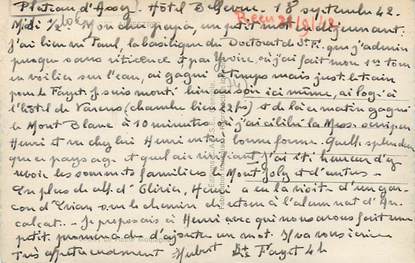 Plateau d'Assy. Hôtel B. Secours. 18 septembre 42.
Recu 21/9/42
Midi 1/2. Mon cher papa, un petit mot déjeunant.
J'ai bien vu Paul, la basilique du Doctorat de St F. que j'admire
presque sans réticence et par Yvoire, où j'ai fait mon 1er tour
en voilier sur l'eau, ai gagné à temps mais juste le train
pour le Fayet. Je suis monté bien au soir ici même, ai logé à
l'hôtel de Varens (chambre bien 22frs) et de là ce matin gagné
le Mont Blanc à 10 minutes où j'ai célébré la Mess. servi par
Henri et vu chez lui Henri en très bonne forme. Quelle splendeur
que ce paysage et quel air vivifiant. J'ai été heureux d'y
revoir les sommets familiers le Mont Joly et d'autres. -
En plus de celle d' Henri a eu la visite d'un garçon
sur le chemin de retour à l'alumnat d'
- Je proposais à Henri avec qui nous avons fait un
petit promenade d'ajouter un mot. Il va vous écrire
Très affectueusement Hubert St Fayet 4h